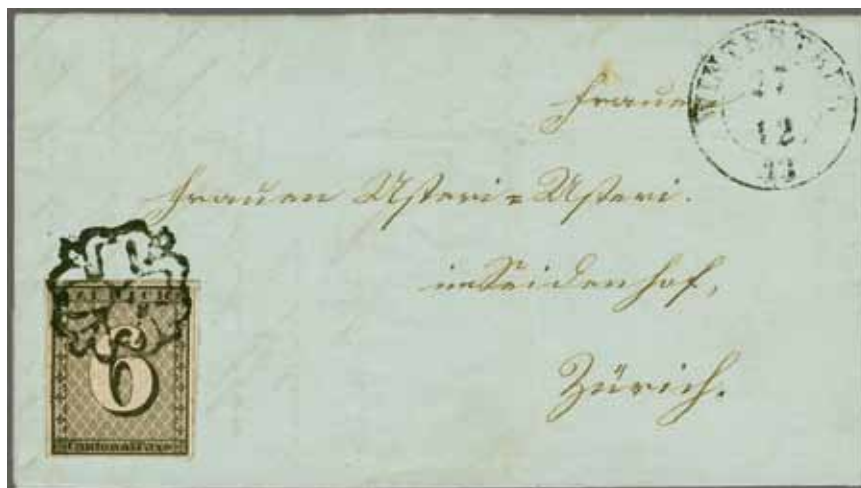 WINTERTHUR
27
12
Frauen
Frauen Usteri=Usteri.
im Seidenhof,
Zürich.
ZÜRICH
6
Cantonal-Taxe